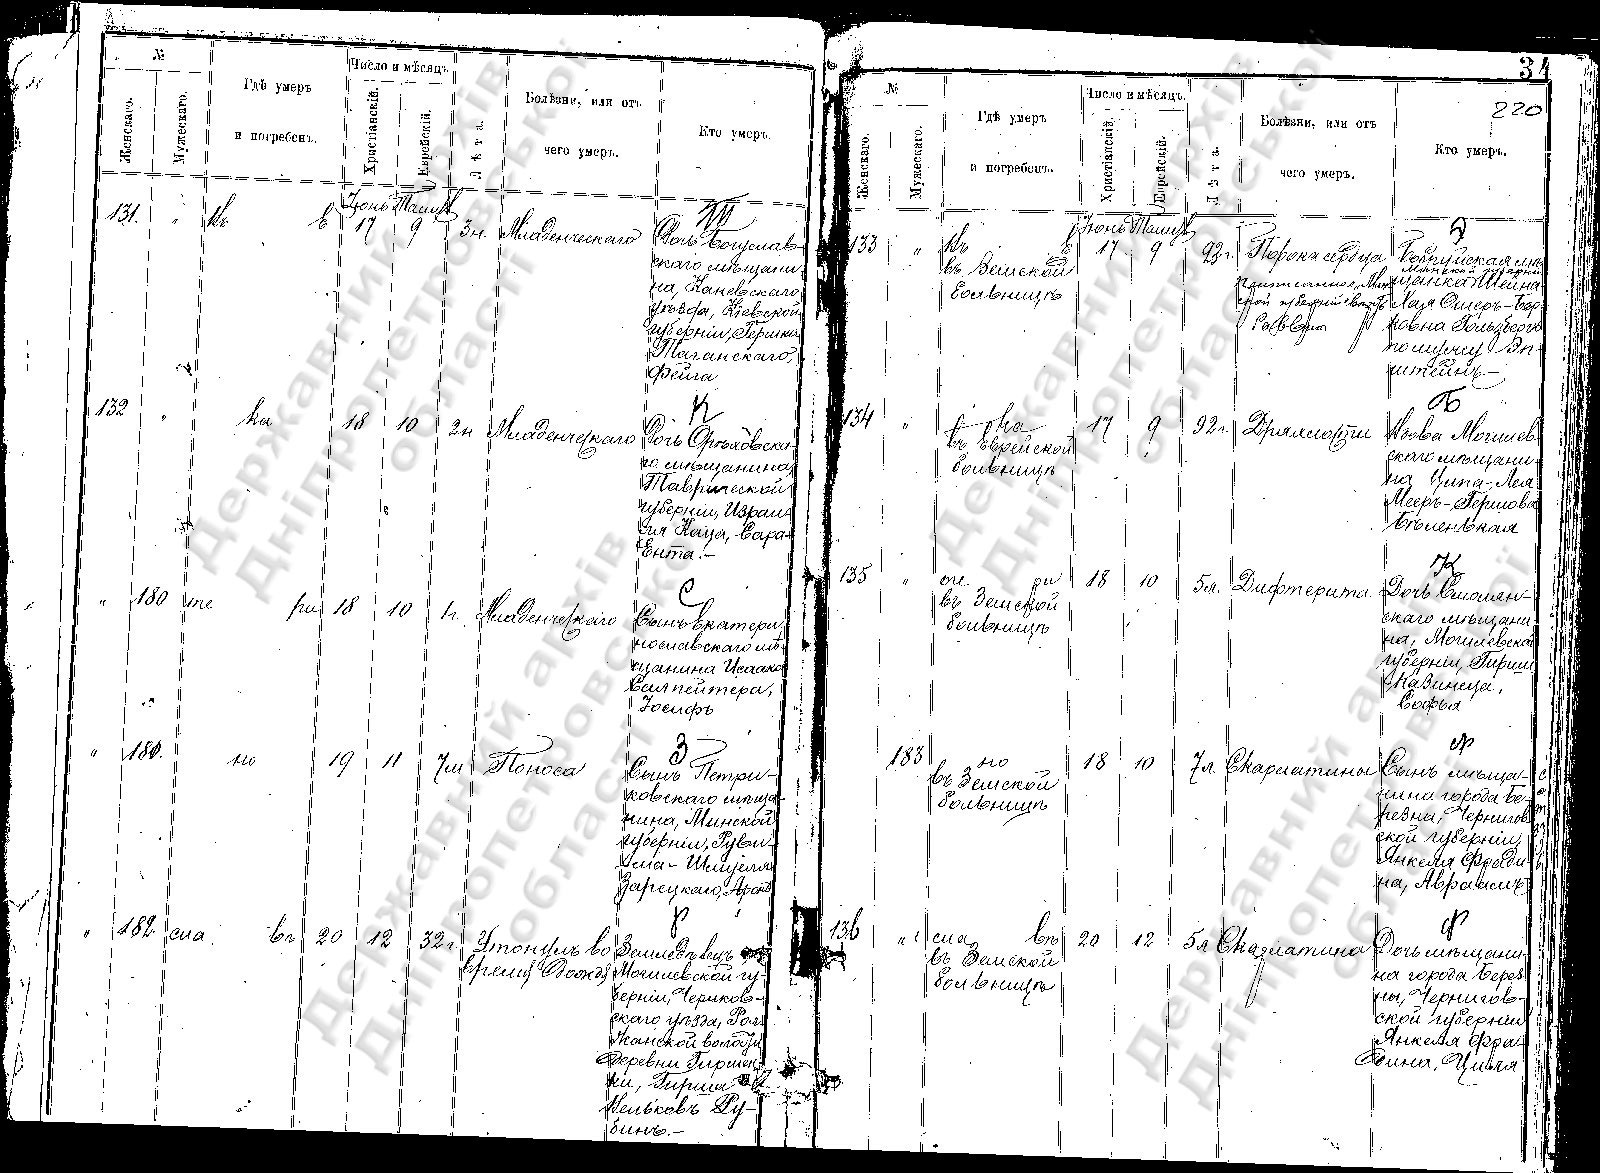 №
Женскаго.
Мужескаго.
Гдѣ умеръ
и погребенъ.
Число и мѣсяцъ
Христіанскій.
Еврейскій.
Лѣта.
Болѣзни, или отъ
чего умеръ.
Кто умеръ.
131. " Въ Е
Іюнь Тамузъ
17 9 3 н. Младенческаго
Дочь Богуслав-
скаго мѣщани-
на, Каневскаго
уѣзда, Кіевской
губерніи, Гершка
Таганскаго,
Фейга
132 " ка 18 10 2 н Младенческаго
К
Дочь Орѣховска-
го мѣщанина,
Таврической
губерніи, Израи-
ля Каца, Сара-
Ента.-
" 180 те ри 18 10 1 г. Младенческаго
С
Сынъ Екатери-
нославскаго мѣ-
щанина Исаака
Салпейтера,
Іосифъ
" 180. но 19 11 7 м Поноса
З
Сынъ Петри-
ковскаго мѣща-
нина, Минской
губерніи, Руви-
ма- Шмуеля
Зарецкаго, Аронъ
" 182 сла. въ 20 12 32 г. Утонулъ во
время
Р
Земледѣлецъ
Могилевской гу-
берніи, Чериков-
скаго уѣзда,
деревни
Гирша
Рубинъ.-
34
220
№
Женскаго.
Мужескаго.
Гдѣ умеръ
и погребенъ.
Число и мѣсяцъ.
Христіанскій.
Еврейскій.
Лѣта.
Болѣзни, или отъ
чего умеръ.
Кто умеръ.
133 " Въ Е
въ Земской
больницѣ
Іюнь Тамузъ
17 9 92 г. Порока сердца
Минской губерніи
щанка Шейна
Лая Ошеръ-Бер-
ковна Гольдбергъ
по мужу Эп-
штейнъ-
134 " ка
въ Еврейской
больницѣ
17 9 92 г. Дряхлости
Б
Вдова Могилев-
скаго мѣщани-
на Ципа-Лея
Мееръ-Гершова
Бѣленькая
135 " те ри
въ Земской
больницѣ
18 10 5 л. Дифтерита
К
Дочь Смолян-
скаго мѣщани-
на, Могилевской
губерніи, Гирши
Казинеца,
Софья
183 но
въ Земской
больницѣ
18 10 7 л. Скарлатины
Ф
Сынъ мѣща-
нина города Бе-
резна, Чернигов-
ской губерніи,
Янкеля Фради-
на, Авраамъ
136 " сла въ
въ Земской
больницѣ
20 12 5 л Скарлатина
Ф
Дочь мѣщани-
на города Берез-
ны, Чернигов-
ской губерніи
Янкеля Фра-
дина, Циля
Державний архів
Дніпропетровської
області